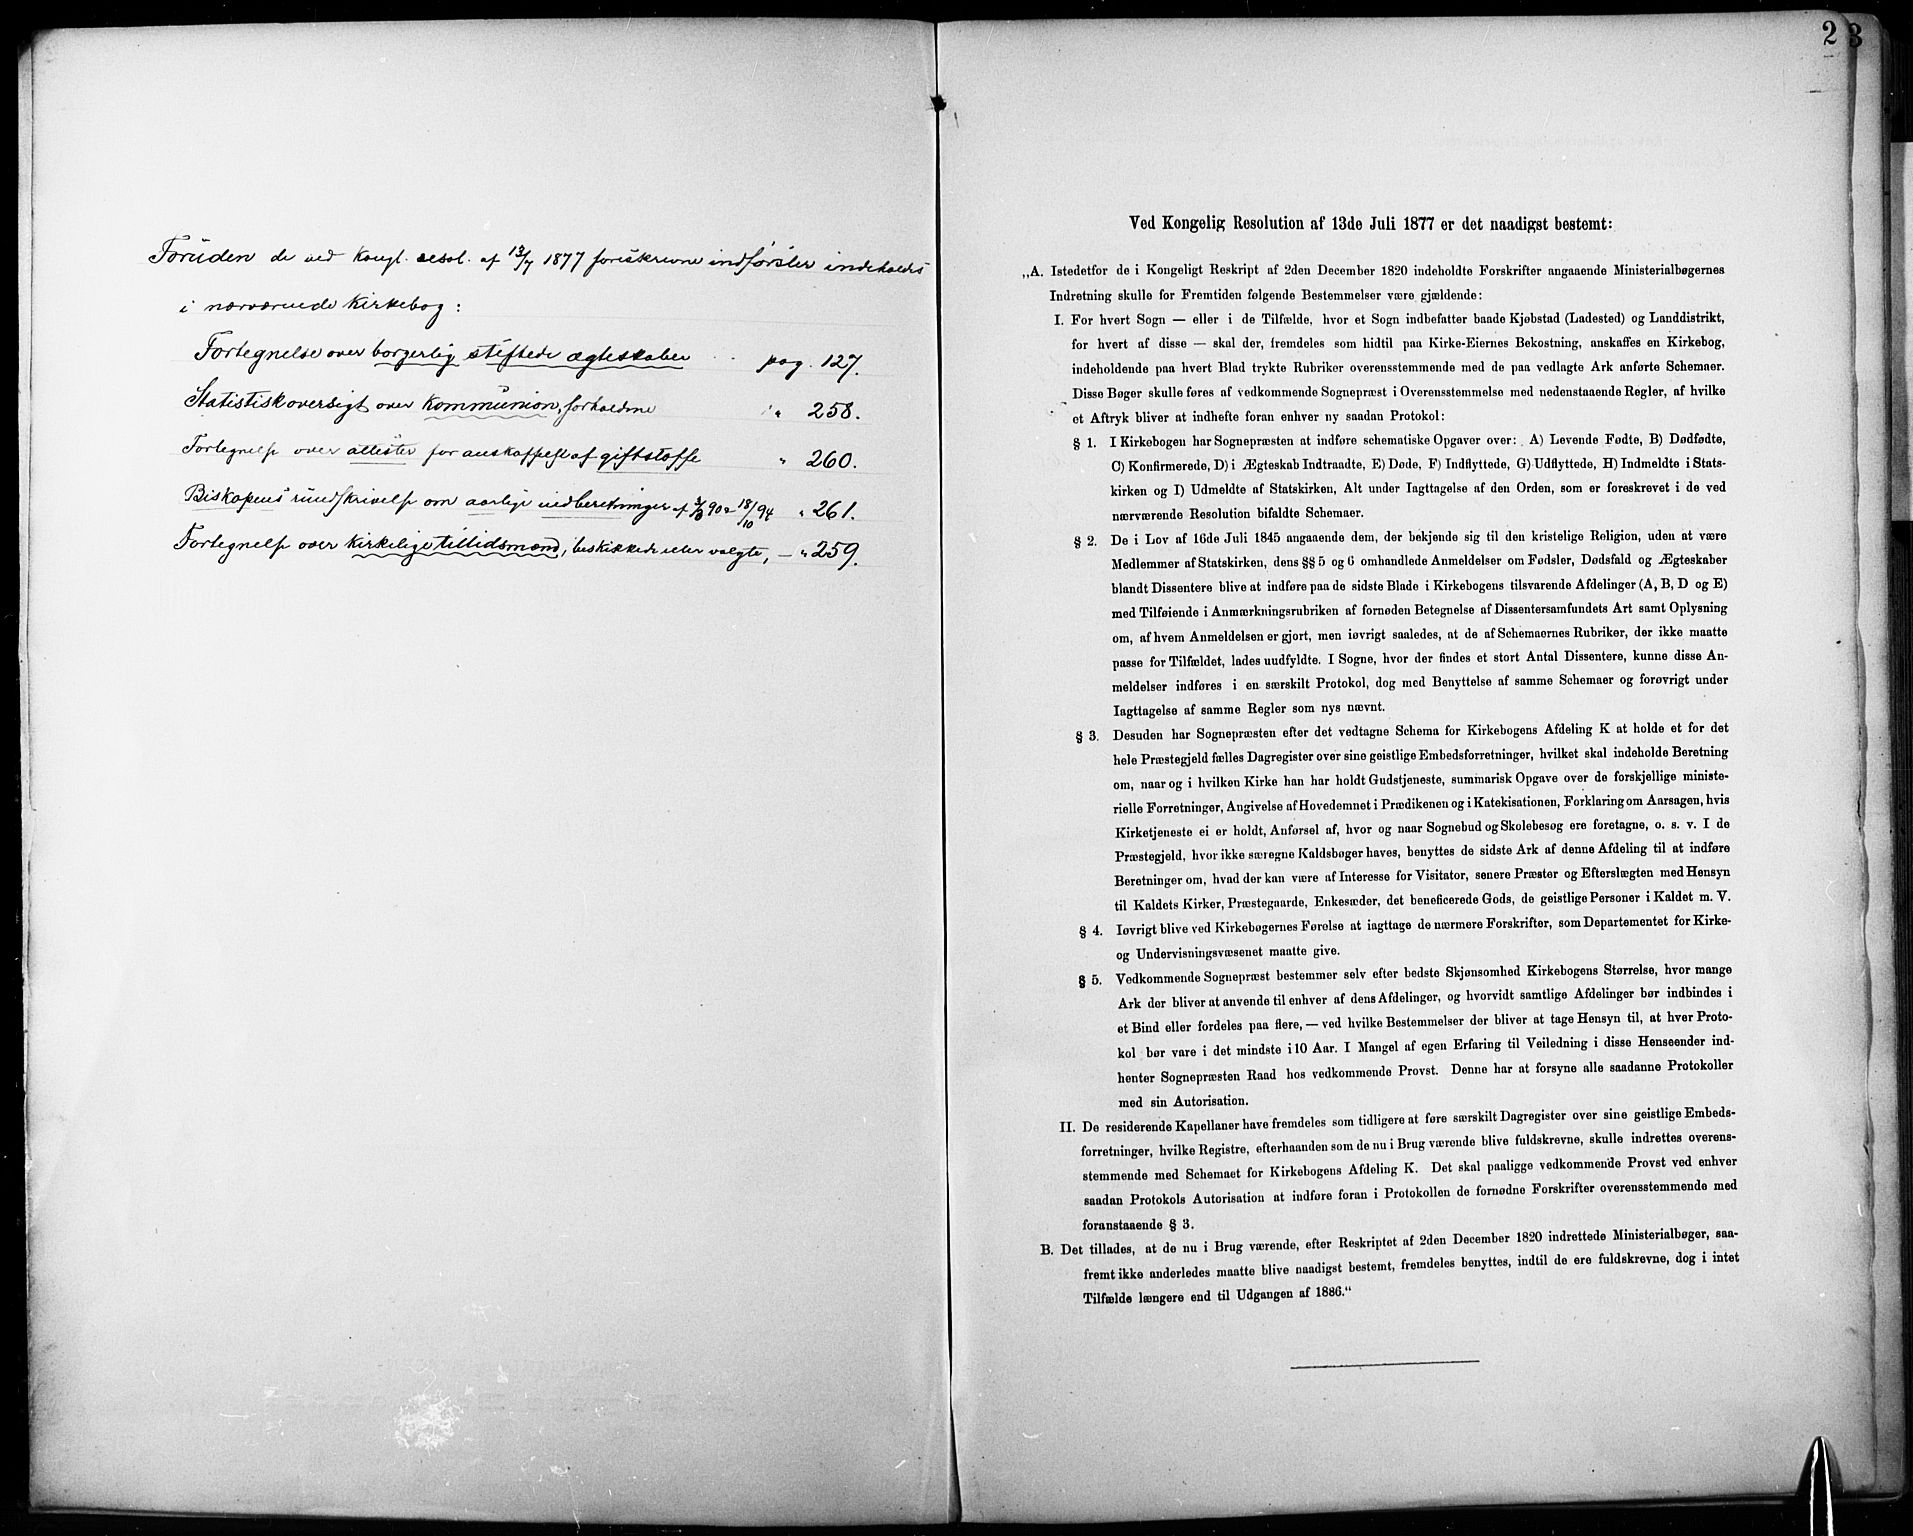 Foruden de ved Kongl. resol. af 13/7 1877 foreskrevne indførsler indeholdes
i nærværende Kirkebog:
Fortegnelse over borgerlig stiftede ægteskaber pag. 127.
Statistisk oversigt over kommunionsforholdene " 258.
Fortegnelse over attester for anskaffelse af giftstoffe " 260.
Biskopens rundskrivelse om aarlige indberetninger af 90 18/10 94 " 261.
Fortegnelse over kirkelige tillidsmænd, beskikkede eller valgte, — " 259.
2 3
Ved Kongelig Resolution af 13de Juli 1877 er det naadigst bestemt:
„A. Istedetfor de i Kongeligt Reskript af 2den December 1820 indeholdte Forskrifter angaaende Ministerialbøgernes
Indretning skulle for Fremtiden følgende Bestemmelser være gjældende:
I. For hvert Sogn — eller i de Tilfælde, hvor et Sogn indbefatter baade Kjøbstad (Ladested) og Landdistrikt,
for hvert af disse — skal der, fremdeles som hidtil paa Kirke-Eiernes Bekostning, anskaffes en Kirkebog,
indeholdende paa hvert Blad trykte Rubriker overensstemmende med de paa vedlagte Ark anførte Schemaer.
Disse Bøger skulle føres af vedkommende Sognepræst i Overensstemmelse med nedenstaaende Regler, af hvilke
et Aftryk bliver at indhefte foran enhver ny saadan Protokol:
§ 1. I Kirkebogen har Sognepræsten at indføre schematiske Opgaver over: A) Levende Fødte, B) Dødfødte,
C) Konfirmerede, D) i Ægteskab Indtraadte, E) Døde, F) Indflyttede, G) Udflyttede, H) Indmeldte i Stats-
kirken og I) Udmeldte af Statskirken, Alt under Iagttagelse af den Orden, som er foreskrevet i de ved
nærværende Resolution bifaldte Schemaer.
§ 2. De i Lov af 16de Juli 1845 angaaende dem, der bekjende sig til den kristelige Religion, uden at være
Medlemmer af Statskirken, dens §§ 5 og 6 omhandlede Anmeldelser om Fødsler, Dødsfald og Ægteskaber
blandt Dissentere blive at indføre paa de sidste Blade i Kirkebogens tilsvarende Afdelinger (A, B, D og E)
med Tilføiende i Anmærkningsrubriken af fornøden Betegnelse af Dissentersamfundets Art samt Oplysning
om, af hvem Anmeldelsen er gjort, men iøvrigt saaledes, at de af Schemaernes Rubriker, der ikke maatte
passe for Tilfældet, lades uudfyldte. I Sogne, hvor der findes et stort Antal Dissentere, kunne disse An-
meldelser indføres i en særskilt Protokol, dog med Benyttelse af samme Schemaer og forøvrigt under
Iagttagelse af samme Regler som nys nævnt.
§ 3. Desuden har Sognepræsten efter det vedtagne Schema for Kirkebogens Afdeling K at holde et for det
hele Præstegjeld fælles Dagregister over sine geistlige Embedsforretninger, hvilket skal indeholde Beretning
om, naar og i hvilken Kirke han har holdt Gudstjeneste, summarisk Opgave over de forskjellige ministe-
rielle Forretninger, Angivelse af Hovedemnet i Prædikenen og i Katekisationen, Forklaring om Aarsagen, hvis
Kirketjeneste ei er holdt, Anførsel af, hvor og naar Sognebud og Skolebesøg ere foretagne, o. s. v. I de
Præstegjeld, hvor ikke særegne Kaldsbøger haves, benyttes de sidste Ark af denne Afdeling til at indføre
Beretninger om, hvad der kan være af Interesse for Visitator, senere Præster og Efterslægten med Hensyn
til Kaldets Kirker, Præstegaarde, Enkesæder, det beneficerede Gods, de geistlige Personer i Kaldet m. V.
§ 4. Iøvrigt blive ved Kirkebøgernes Førelse at iagttage de nærmere Forskrifter, som Departementet for Kirke-
og Undervisningsvæsenet maatte give.
§ 5. Vedkommende Sognepræst bestemmer selv efter bedste Skjønsomhed Kirkebogens Størrelse, hvor mange
Ark der bliver at anvende til enhver af dens Afdelinger, og hvorvidt samtlige Afdelinger bør indbindes i
et Bind eller fordeles paa flere, — ved hvilke Bestemmelser der bliver at tage Hensyn til, at hver Proto-
kol bør vare i det mindste i 10 Aar. I Mangel af egen Erfaring til Veiledning i disse Henseender ind-
henter Sognepræsten Raad hos vedkommende Provst. Denne har at forsyne alle saadanne Protokoller
med sin Autorisation.
II. De residerende Kapellaner have fremdeles som tidligere at føre særskilt Dagregister over sine geistlige Embeds-
forretninger, hvilke Registre, efterhaanden som de nu i Brug værende blive fuldskrevne, skulle indrettes overens-
stemmende med Schemaet for Kirkebogens Afdeling K. Det skal paaligge vedkommende Provst ved enhver
saadan Protokols Autorisation at indføre foran i Protokollen de fornødne Forskrifter overensstemmende med
foranstaaende § 3.
B. Det tillades, at de nu i Brug værende, efter Reskriptet af 2den December 1820 indrettede Ministerialbøger, saa-
fremt ikke anderledes maatte blive naadigst bestemt, fremdeles benyttes, indtil de ere fuldskrevne, dog i intet
Tilfælde længere end til Udgangen af 1886.“